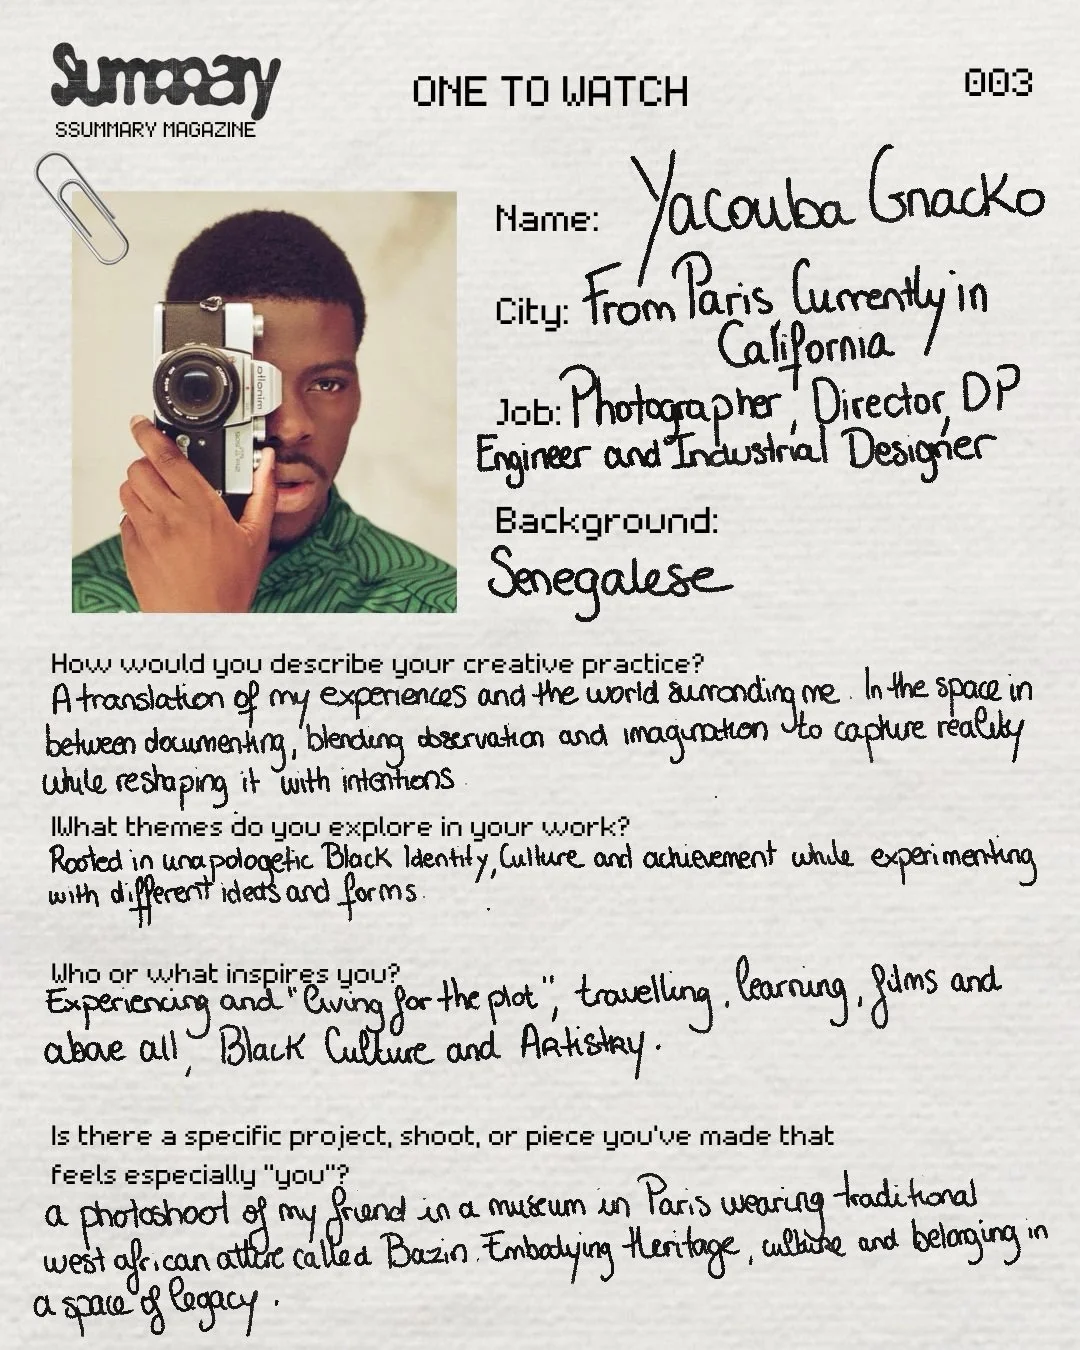 Summary
SSUMMARY MAGAZINE
ONE TO WATCH
003
Name: Yacouba Gnacko
City: From Paris, Currently in
California
Job: Photographer, Director, DP
Engineer and Industrial Designer
Background:
Senegalese
How would you describe your creative practice?
A translation of my experiences and the world surronding me. In the space in
between documenting, blending observation and imagination to capture reality
while reshaping it with intentions.
What themes do you explore in your work?
Rooted in unapologetic Black Identity, Culture and achievement while experimenting
with different ideas and forms.
Who or what inspires you?
Experiencing and "living for the plot", travelling, learning, films and
above all, Black Culture and Artistry.
Is there a specific project, shoot, or piece you've made that
feels especially "you"?
a photoshoot of my friend in a museum in Paris wearing traditional
west african attire called Bazin. Embodying Heritage, culture and belonging in
a space of legacy.